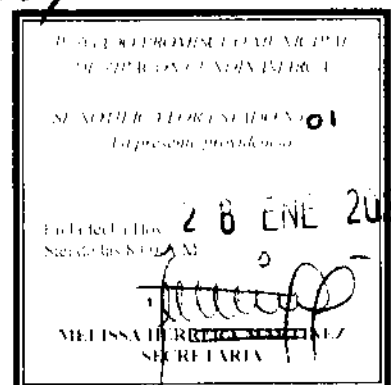 MUNICIPAL
DE ZIPACON CUNDINAMARCA
SE NOTIFICA POR ESTADO No 01
La presente providencia
En la fecha Hoy 28 ENE 20
Siendo las 8:00 A M
MELISSA HERRERA MARTINEZ
SECRETARIA